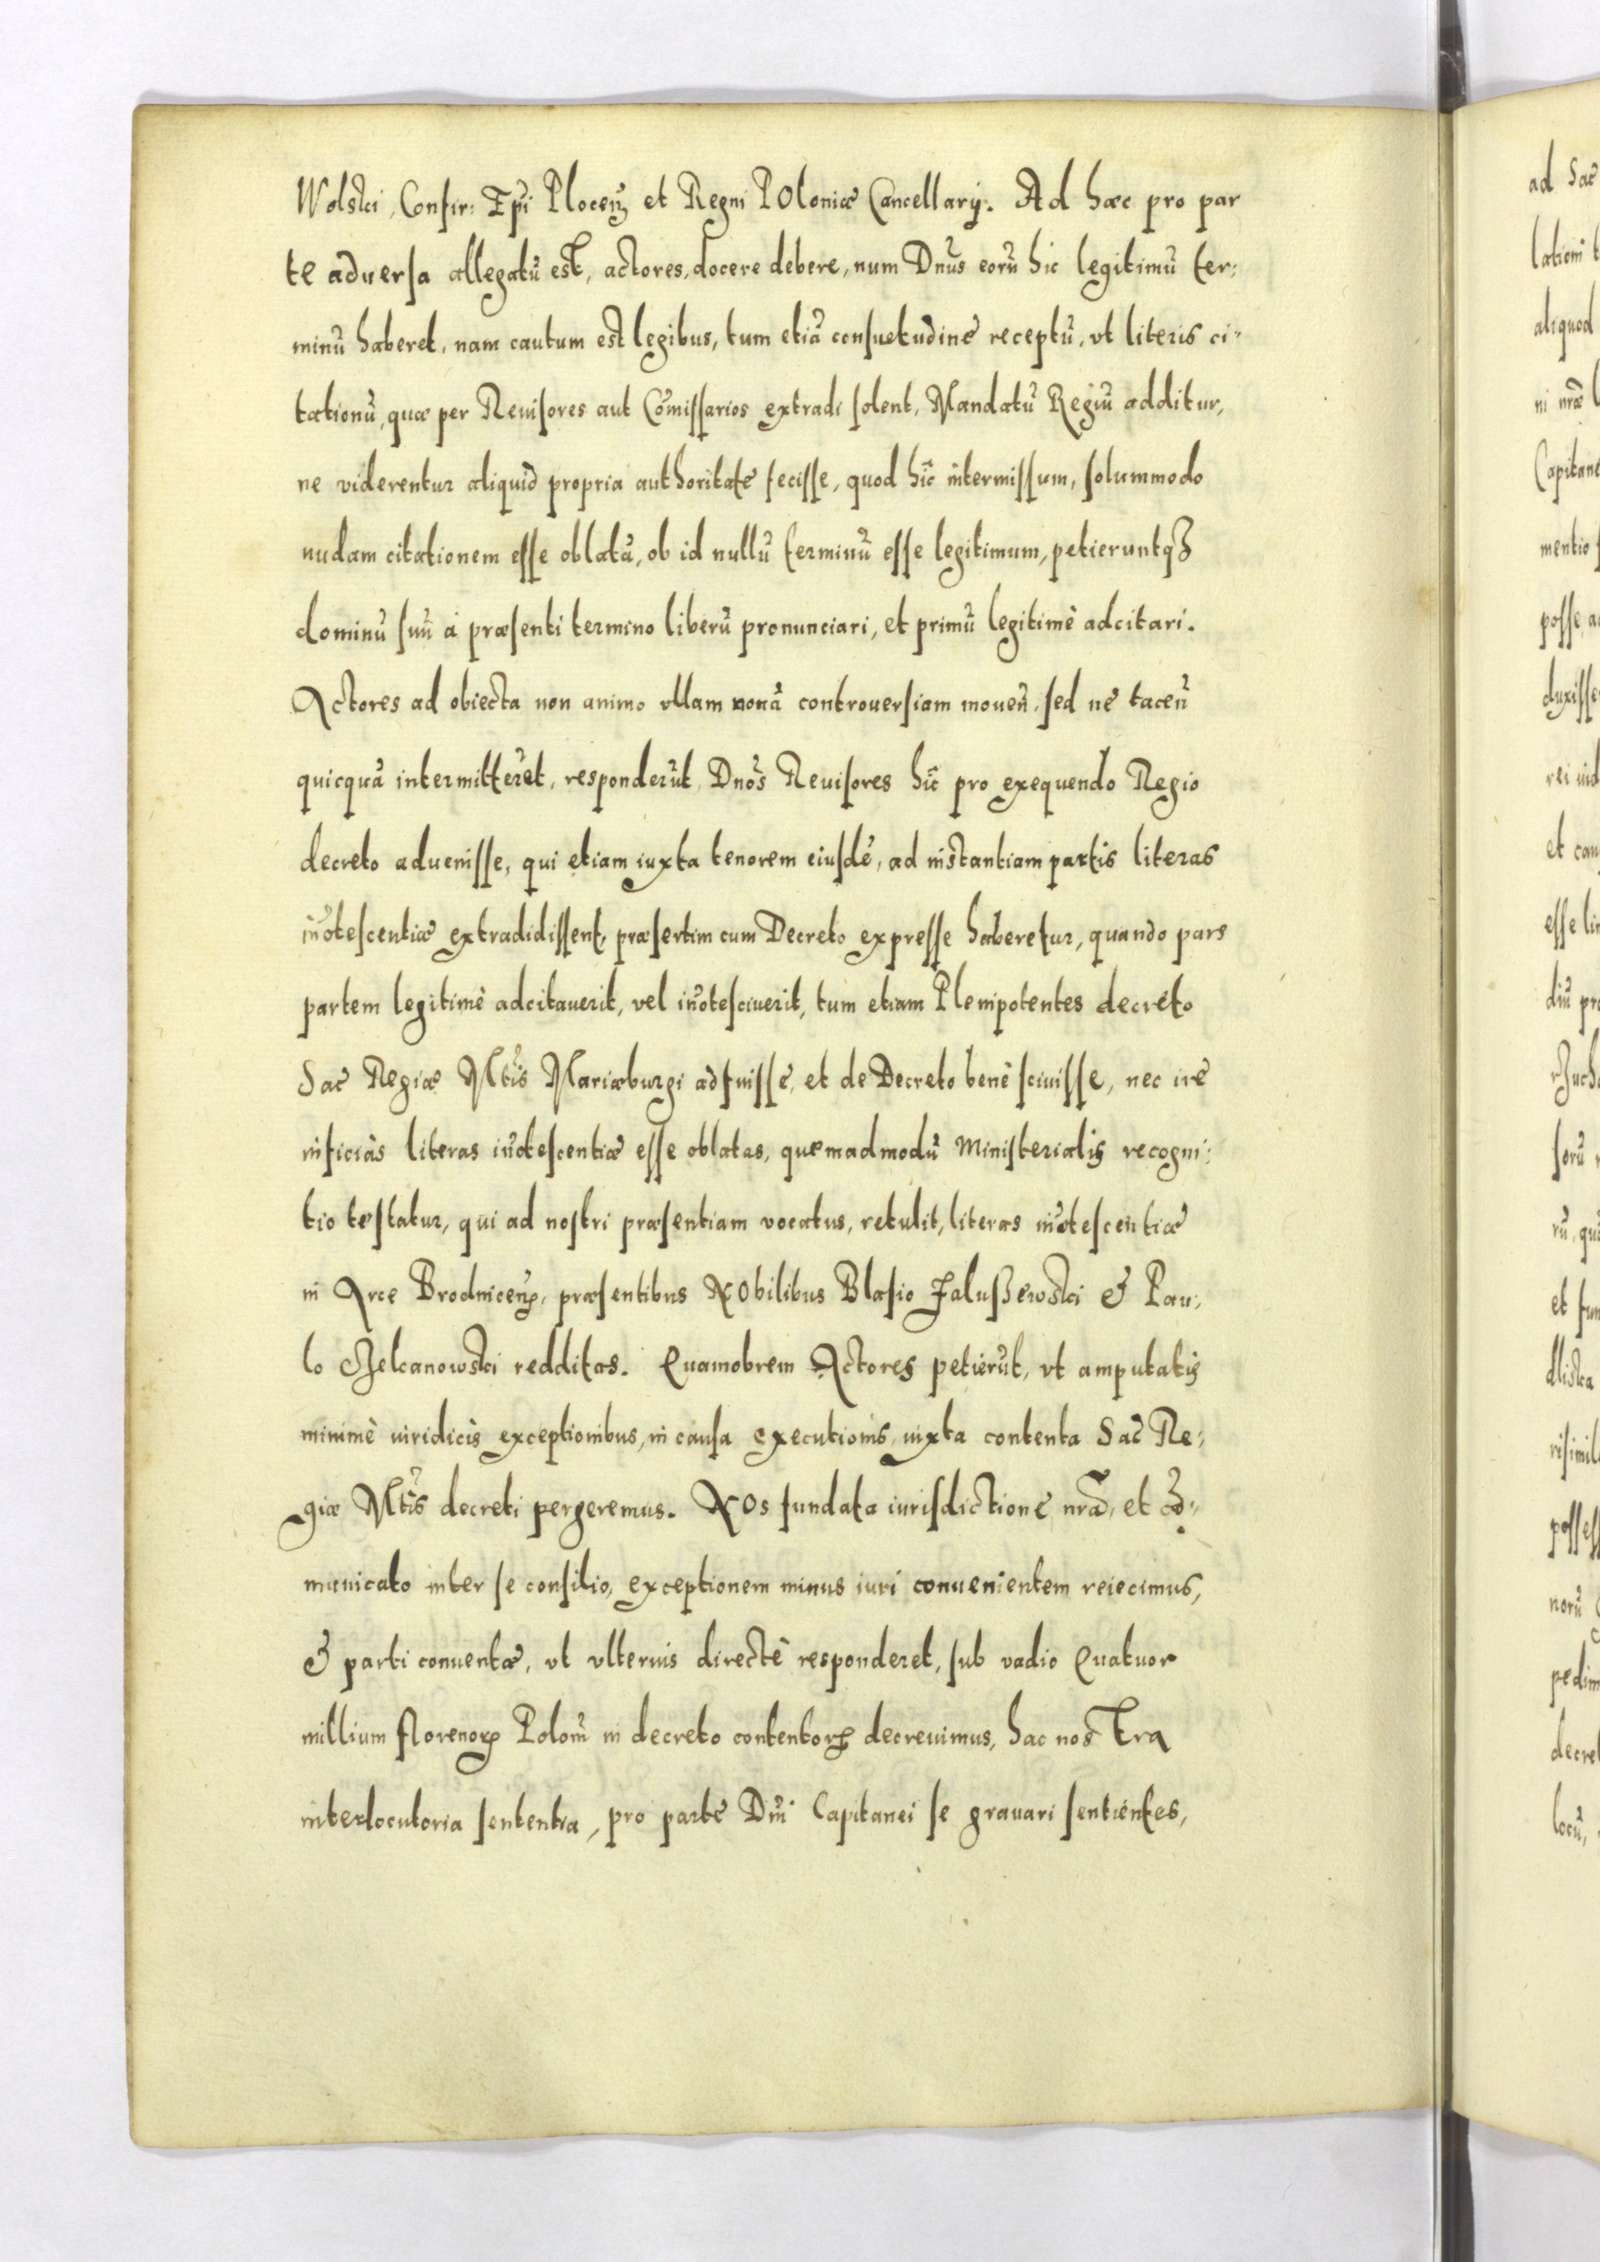 Wolski, Confir: Epi Plocen̄ et Regni POloniæ Cancellarij. Ad hæc pro par
te aduersa allegatū est, actores, docere debere, num Dnūs eorū hic legitimū ter:
minū haberet, nam cautum est legibus, tum etiā consuetudine receptū, vt literis ci-
tationū, quæ per Reuisores aut Cōmissarios extradi solent, Mandatū Regiū additur,
ne viderentur aliquid propria authoritate fecisse, quod hîc intermissum, solummodo
nudam citationem esse oblatā, ob id nullū terminū esse legitimum, petieruntqȝ
dominū suū à præsenti termino liberū pronunciari, et primū legitimè adcitari.
Actores ad obiecta non animo vllam nouā controuersiam mouen̄, sed ne tacen̄
quicquā intermitterēt, responderūt, Dnōs Reuisores hîc pro exequendo Regio
decreto aduenisse, qui etiam iuxta tenorem eiusdē, ad instantiam partis literas
in̄otescentiæ extradidissent, præsertim cum Decreto expresse haberetur, quando pars
partem legitimè adcitauerit, vel in̄otesciuerit, tum etiam Plenipotentes decreto
Sac Regiæ Mtīs Mariæburgi adfuisse, et de Decreto benè sciuisse, nec ire
inficiàs literas in̄otescentiæ esse oblatas, quemadmodū Ministerialis recogni:
tio testatur, qui ad nostri præsentiam vocatus, retulit, literas in̄otescentiæ
in Arce Brodnicen̄, præsentibus NObilibus Blasio Jalussewski & Pau:
lo Czelcanowski redditas. Quamobrem Actores petierūt, vt amputatis
minimè iuridicis exceptionibus, in causa executionis, iuxta contenta Sac Re:
giæ Mtīs decreti pergeremus. NOs fundata iurisdictione nrā, et cō:
municato inter se consilio, exceptionem minus iuri conuenientem reiecimus,
& parti conuentæ, vt vlterius directè responderet, sub vadio Quatuor
millium florenorꝝ Polon̄ in decreto contentorꝝ decreuimus, hac nostra
interlocutoria sententia, pro parte Dnī Capitanei se grauari sentientes,